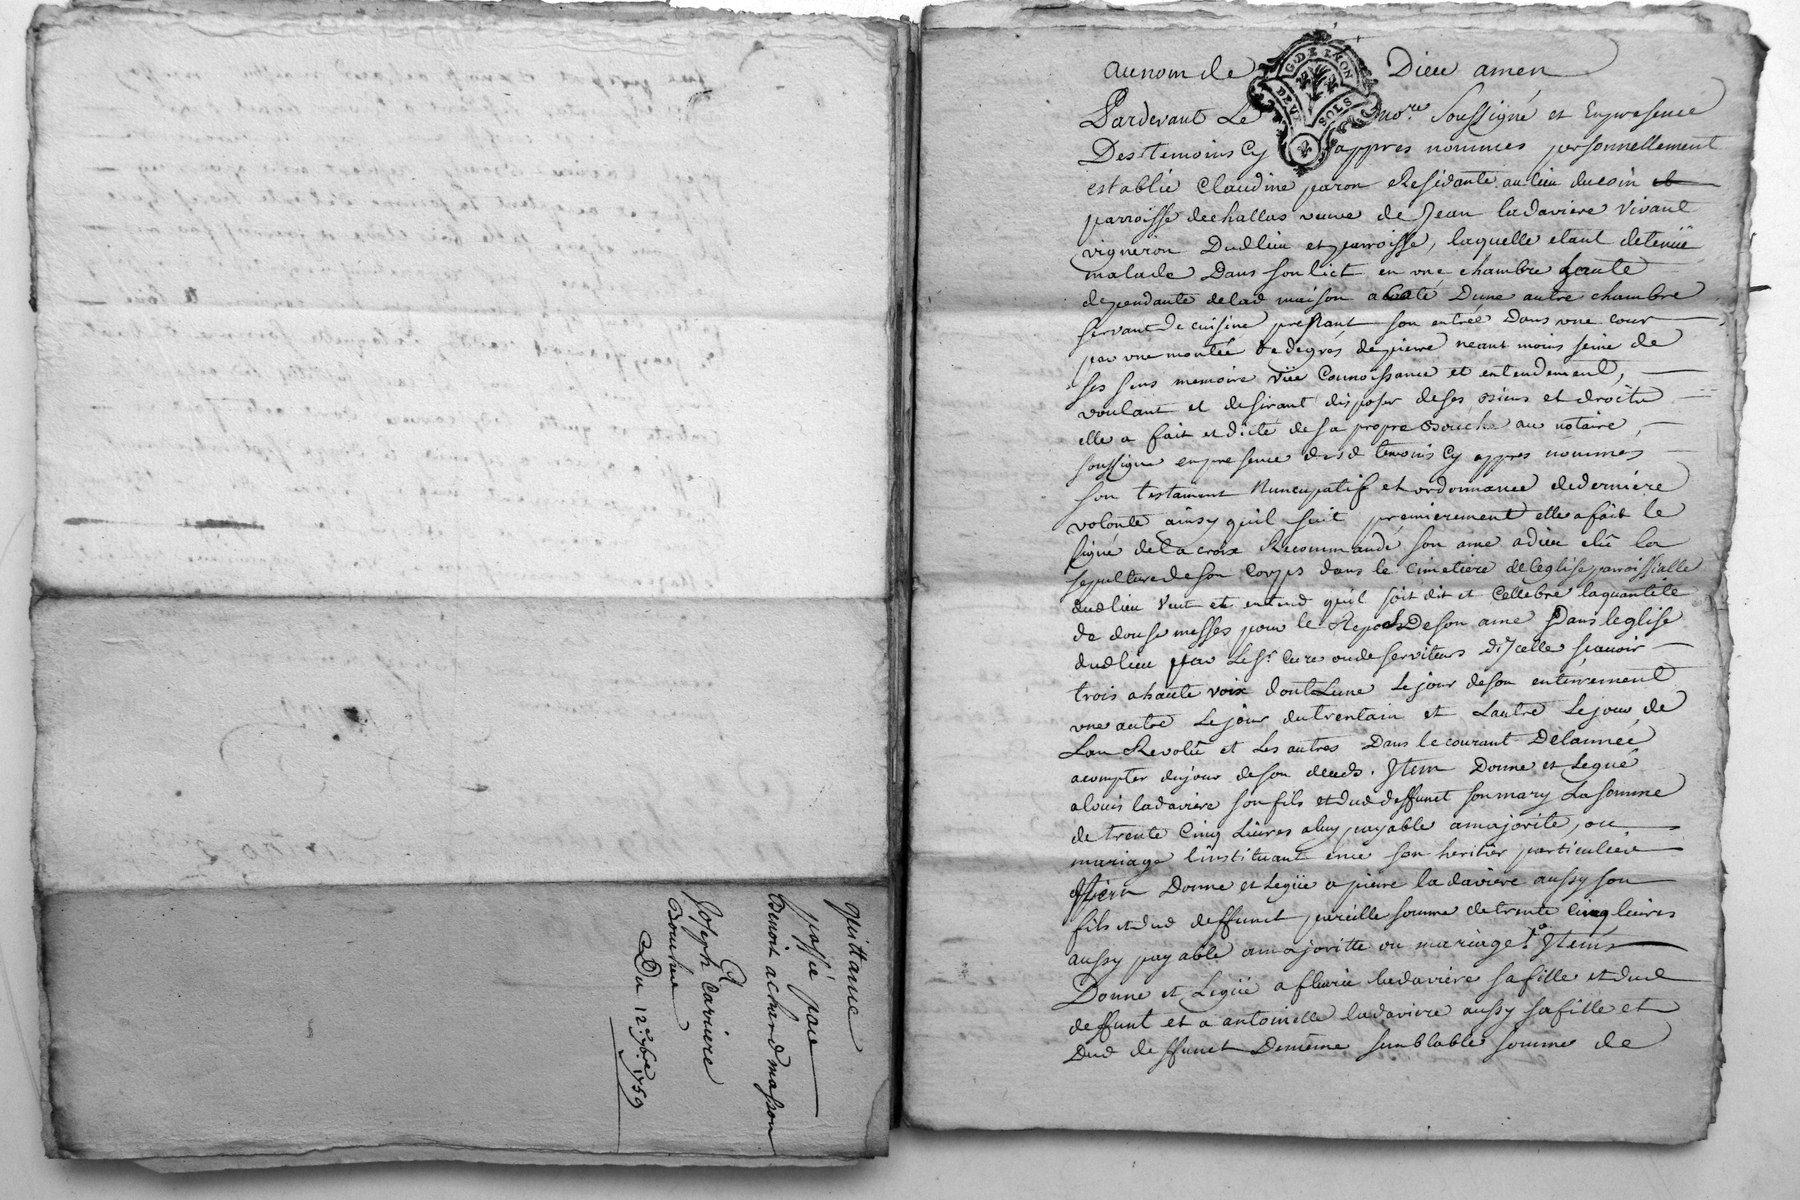 quittance
passée par
Benoit achard masson
A
Joseph Carriere
Boucher
Du 12e 7bre 1759
au nom de Dieu amen
G. DE LYON
DEUX SOLS
Pardevant Le nore. soussigné et En presence
Des temoins Cy appres nommés personnellement
establie Claudine paron Residante au lieu du coin et
parroisse de challas veuve de Jean ladaviere vivant
vigneron Dud lieu et parroisse, laquelle etant detenüe
malade Dans son lict en vne chambre haute
dependante de lad maison a Coté Dune autre chambre
servant de cuisine prenant son entrée Dans vne cour
par vne montée de degrés de pierre neant moins seine de
ses sens memoire vüe Connoissance et entendement,
voulant et desirant disposer de ses Biens et droits
elle a fait et dicté de sa propre Bouche au notaire,
soussigné en presence desd temoins Cy appres nommés
son testament Nuncupatif et ordonnance de derniere
volonté ainsy quil suit premierement elle a fait le
signe de la croix Recommandé son ame a dieu elû la
sepulture de son Corps dans le cimetiere de leglise parroissialle
dud lieu veut et entend quil soit dit et Cellebré la quantité
de douse messes pour le Repos De son ame Dans leglise
dud lieu par Le Sr. Curé ou deserviteurs Dicelle scavoir
trois a haute voix dont Lune Le jour de son enterrement
vne autre Le jour du trentain et Lautre Le jour de
Lan Revolû et Les autres Dans le courant De lannée
a compter du jour de son deceds. Item Donne et Legue
a louis ladaviere son fils et dud deffunct son mary La somme
de trente Cinq Livres a luy payable a majorité, ou
mariage linstituant en ce son heritier particulier
Item Donne et Legüe a pierre ladaviere aussy son
fils et dud deffunct pareille somme de trente Cinq livres
aussy payable a majoritte ou mariage. Item
Donne et Legüe a fleurie ladaviere sa fille et dud
deffunt et a antoinette ladaviere aussy sa fille et
Dud deffunct De meme semblable somme de